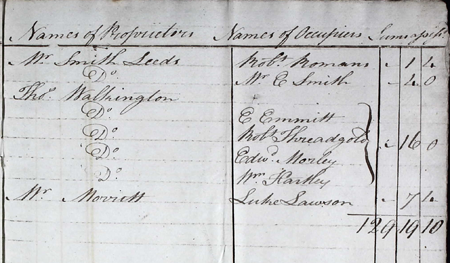 Names of Proprietors Names of Occupiers Sums
Mr Smith Leeds Robt Romans 1 4
Do Mr E Smith 4 0
Thos Walkington
Do E Emmitt
Do Robt Threadgold 16 0
Do Edwd Morley
Do Wm Hartley
Mr Moviett Luke Lawson 7 4
129 19 10